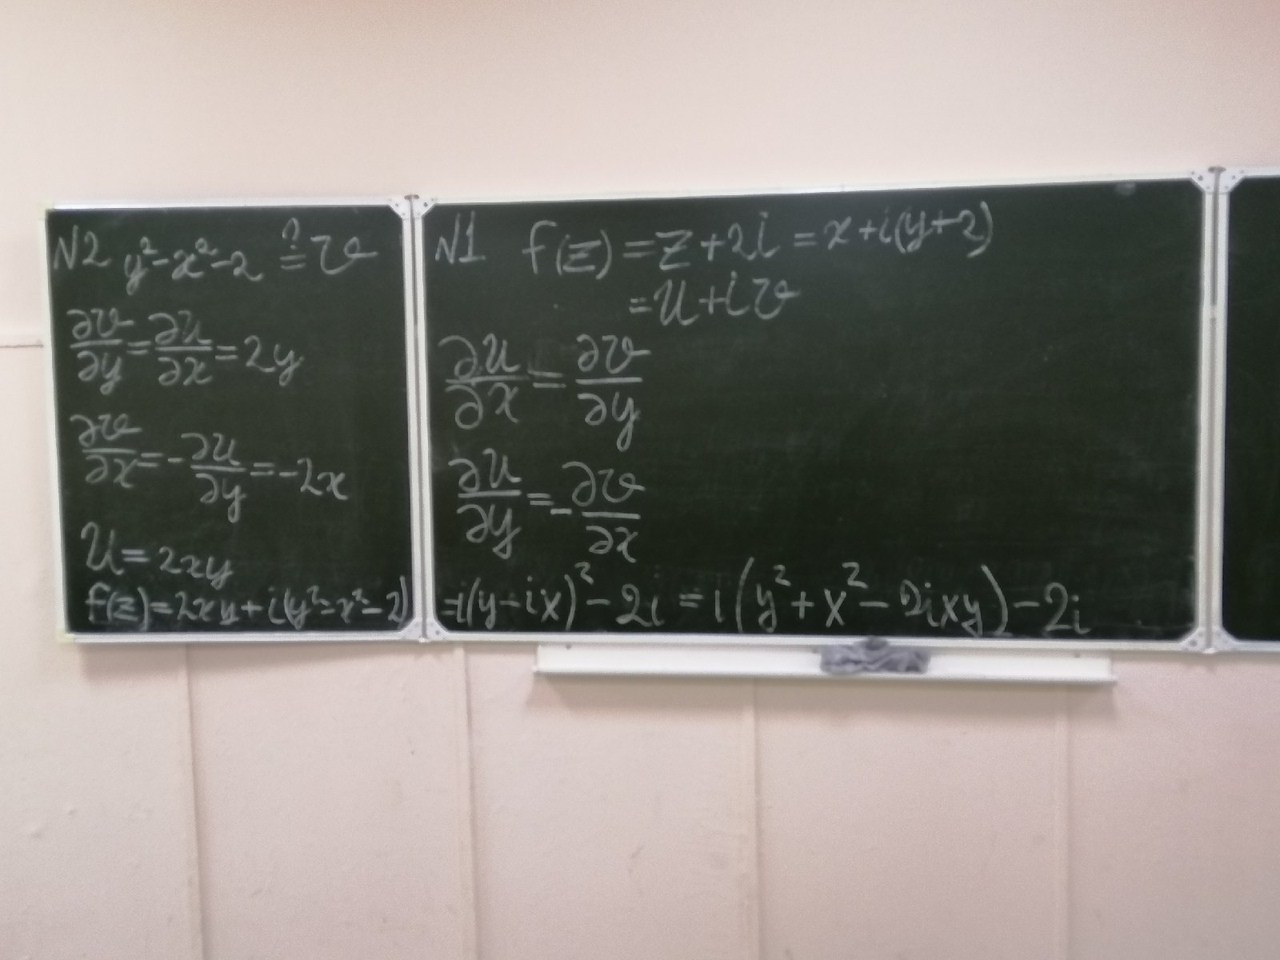 N2 y²-x²-2 ?= v
∂v/∂y = ∂u/∂x = 2y
∂v/∂x = -∂u/∂y = -2x
U = 2xy
f(z) = 2xy + i(y²-x²-2)
N1 f(z) = z + 2i = x + i(y+2)
= u + iv
∂u/∂x = ∂v/∂y
∂u/∂y = -∂v/∂x
= i(y-ix)² - 2i = i(y² + x² - 2ixy) - 2i